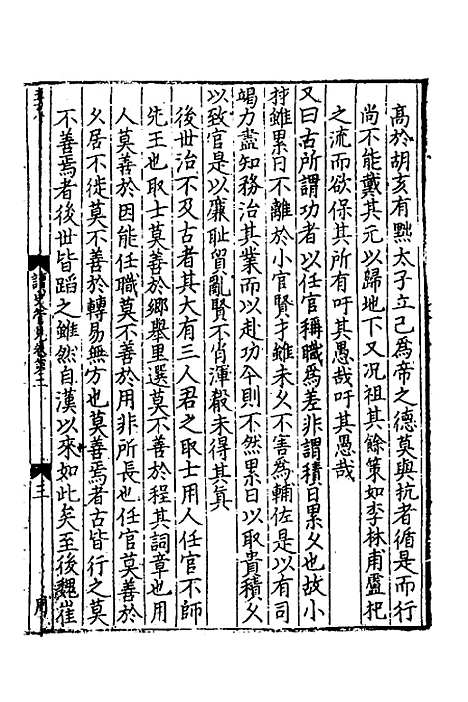 高於胡亥有黜太子立己爲帝之德莫與抗者循是而行
尚不能戴其元以歸地下又况祖其餘策如李林甫盧杞
之流而欲保其所有吁其愚哉吁其愚哉
又曰古所謂功者以任官稱職爲差非謂積日累久也故小
材雖累日不離於小官賢才雖未久不害爲輔佐是以有司
竭力盡知務治其業而以赴功今則不然累日以取貴積久
以致官是以廉耻貿亂賢不肖渾殽未得其真
後世治不及古者其大有三人君之取士用人任官不師
先王也取士莫善於鄉舉里選莫不善於程其詞章也用
人莫善於因能任職莫不善於用非所長也任官莫善於
久居不徙莫不善於轉易無方也莫善焉者古皆行之莫
不善焉者後世皆蹈之雖然自漢以來如此矣至後魏崔
讀史管見卷第二
三